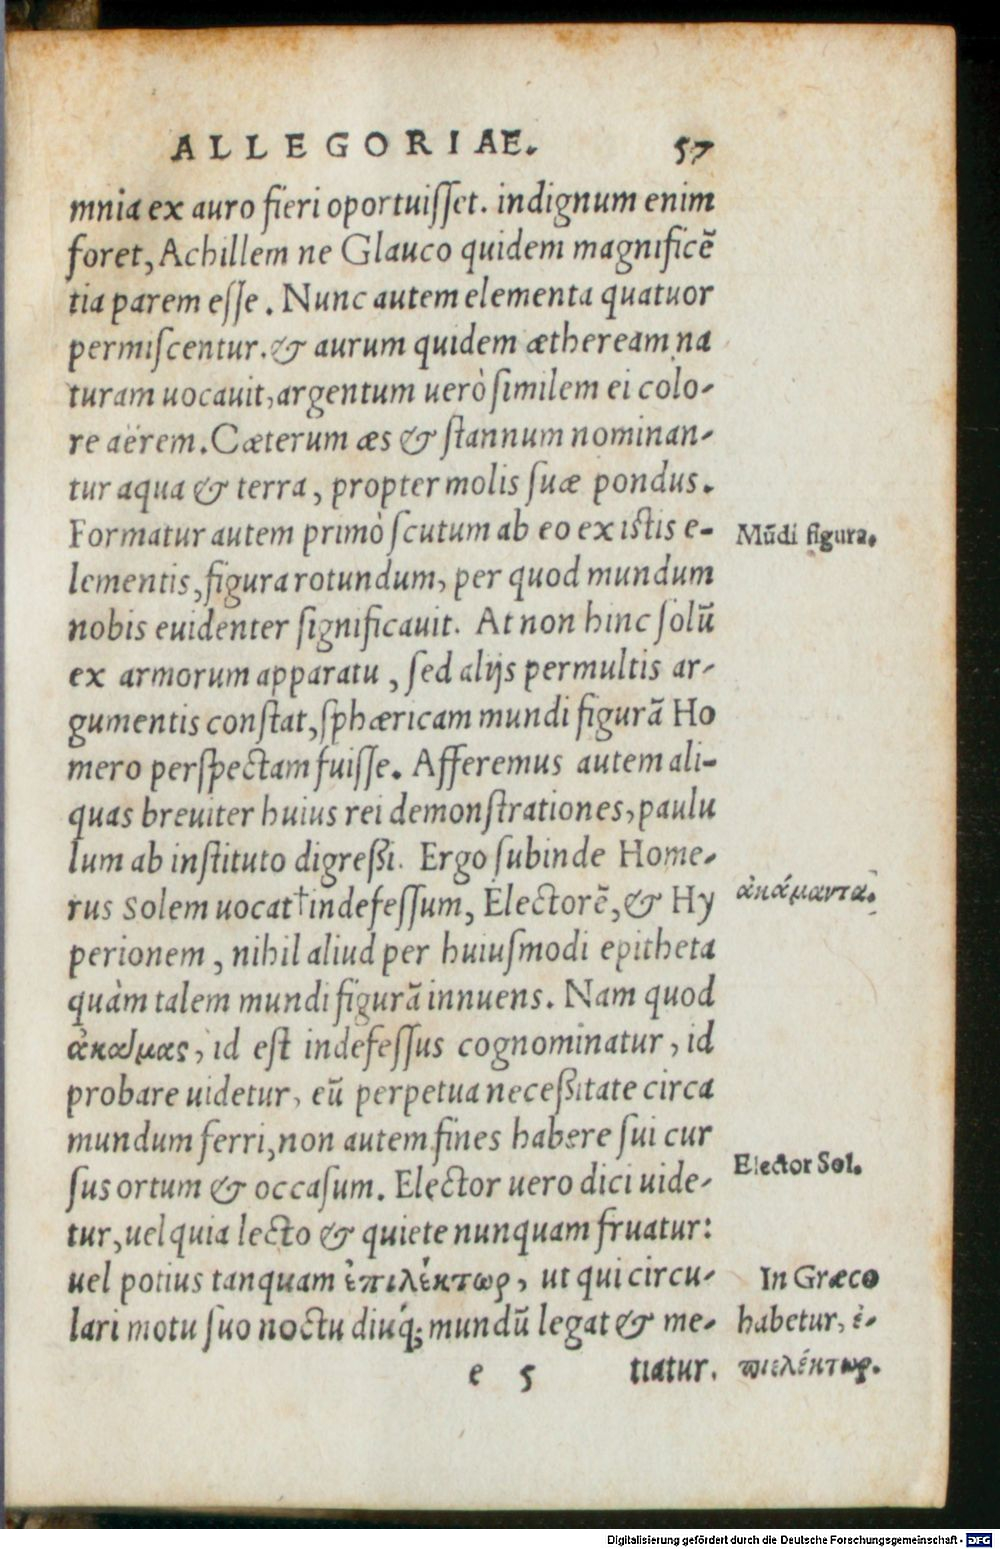 ALLEGORIAE. 57
mnia ex auro fieri oportuiſſet. indignum enim
foret, Achillem ne Glauco quidem magnificẽ
tia parem eſſe. Nunc autem elementa quatuor
permiſcentur. & aurum quidem ætheream na
turam uocauit, argentum uerò ſimilem ei colo-
re aërem. Cæterum æs & ſtannum nominan-
tur aqua & terra, propter molis ſuæ pondus.
Formatur autem primò ſcutum ab eo ex iſtis e-
lementis, figura rotundum, per quod mundum
nobis euidenter ſignificauit. At non hinc ſolũ
ex armorum apparatu, ſed alijs permultis ar-
gumentis conſtat, ſphæricam mundi figurã Ho
mero perſpectam fuiſſe. Afferemus autem ali-
quas breuiter huius rei demonſtrationes, paulu
lum ab inſtituto digreßi. Ergo ſubinde Home-
rus Solem uocat†indefeſſum, Electorẽ, & Hy
perionem, nihil aliud per huiuſmodi epitheta
quàm talem mundi figurã innuens. Nam quod
ἀκάμας, id eſt indefeſſus cognominatur, id
probare uidetur, eũ perpetua neceßitate circa
mundum ferri, non autem fines habere ſui cur
ſus ortum & occaſum. Elector uero dici uide-
tur, uel quia lecto & quiete nunquam fruatur:
uel potius tanquam ἐπιλέκτωρ, ut qui circu-
lari motu ſuo noctu diuq́; mundũ legat & me-
e 5 tiatur.
Mũdi figura.
ἀκάμαντα.
Elector Sol.
In Græco
habetur, ἐ-
πιελέκτωρ.
Digitalisierung gefördert durch die Deutsche Forschungsgemeinschaft - DFG